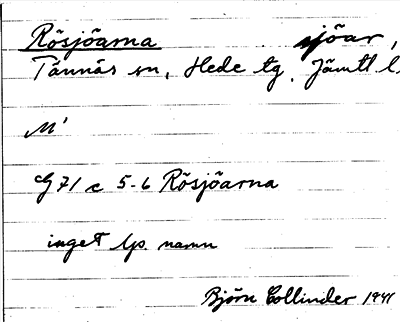 Rösjöarna sjöar,
Tännäs sn, Hede tg, Jämtl l.
M'
G 71 c 5-6 Rösjöarna
inget lp. namn
Björn Collinder 1941